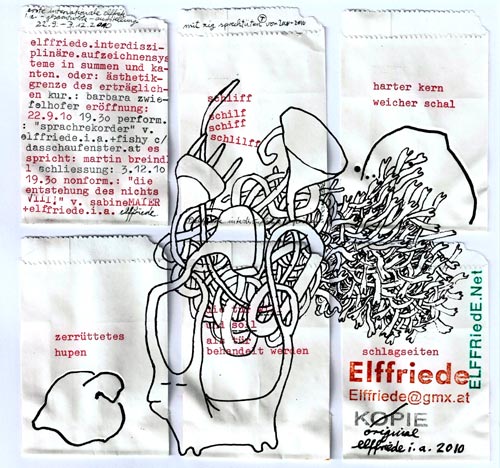 erste internationale elffriede
22.9 - 3.12.2010
elffriede.interdiszi-
plinäre.aufzeichnensys-
teme in summen und ka-
nten. oder: ästhetik-
grenze des erträglich-
en kur.: barbara zwie-
felhofer eröffnung:
22.9.10 19.30 perform.
: "sprachrekorder" v.
elffriede.i.a.+fishy c/
dasschaufenster.at es
spricht: martin breindl
l schliessung: 3.12.10
19.30 nonform.: "die
entstehung des nichts
VIII." v. sabineMAIER
+elffriede.i.a. elffriede
mit zig sprechtüten von
schliff
schilf
schiff
schlilff
harter kern
weicher schal
zerrüttetes
hupen
und soll
als tür
behandelt werden
schlagseiten
Elffriede
Elffriede@gmx.at
KOPIE
original
elffriede i.a. 2010
ELFFRiedE.Net